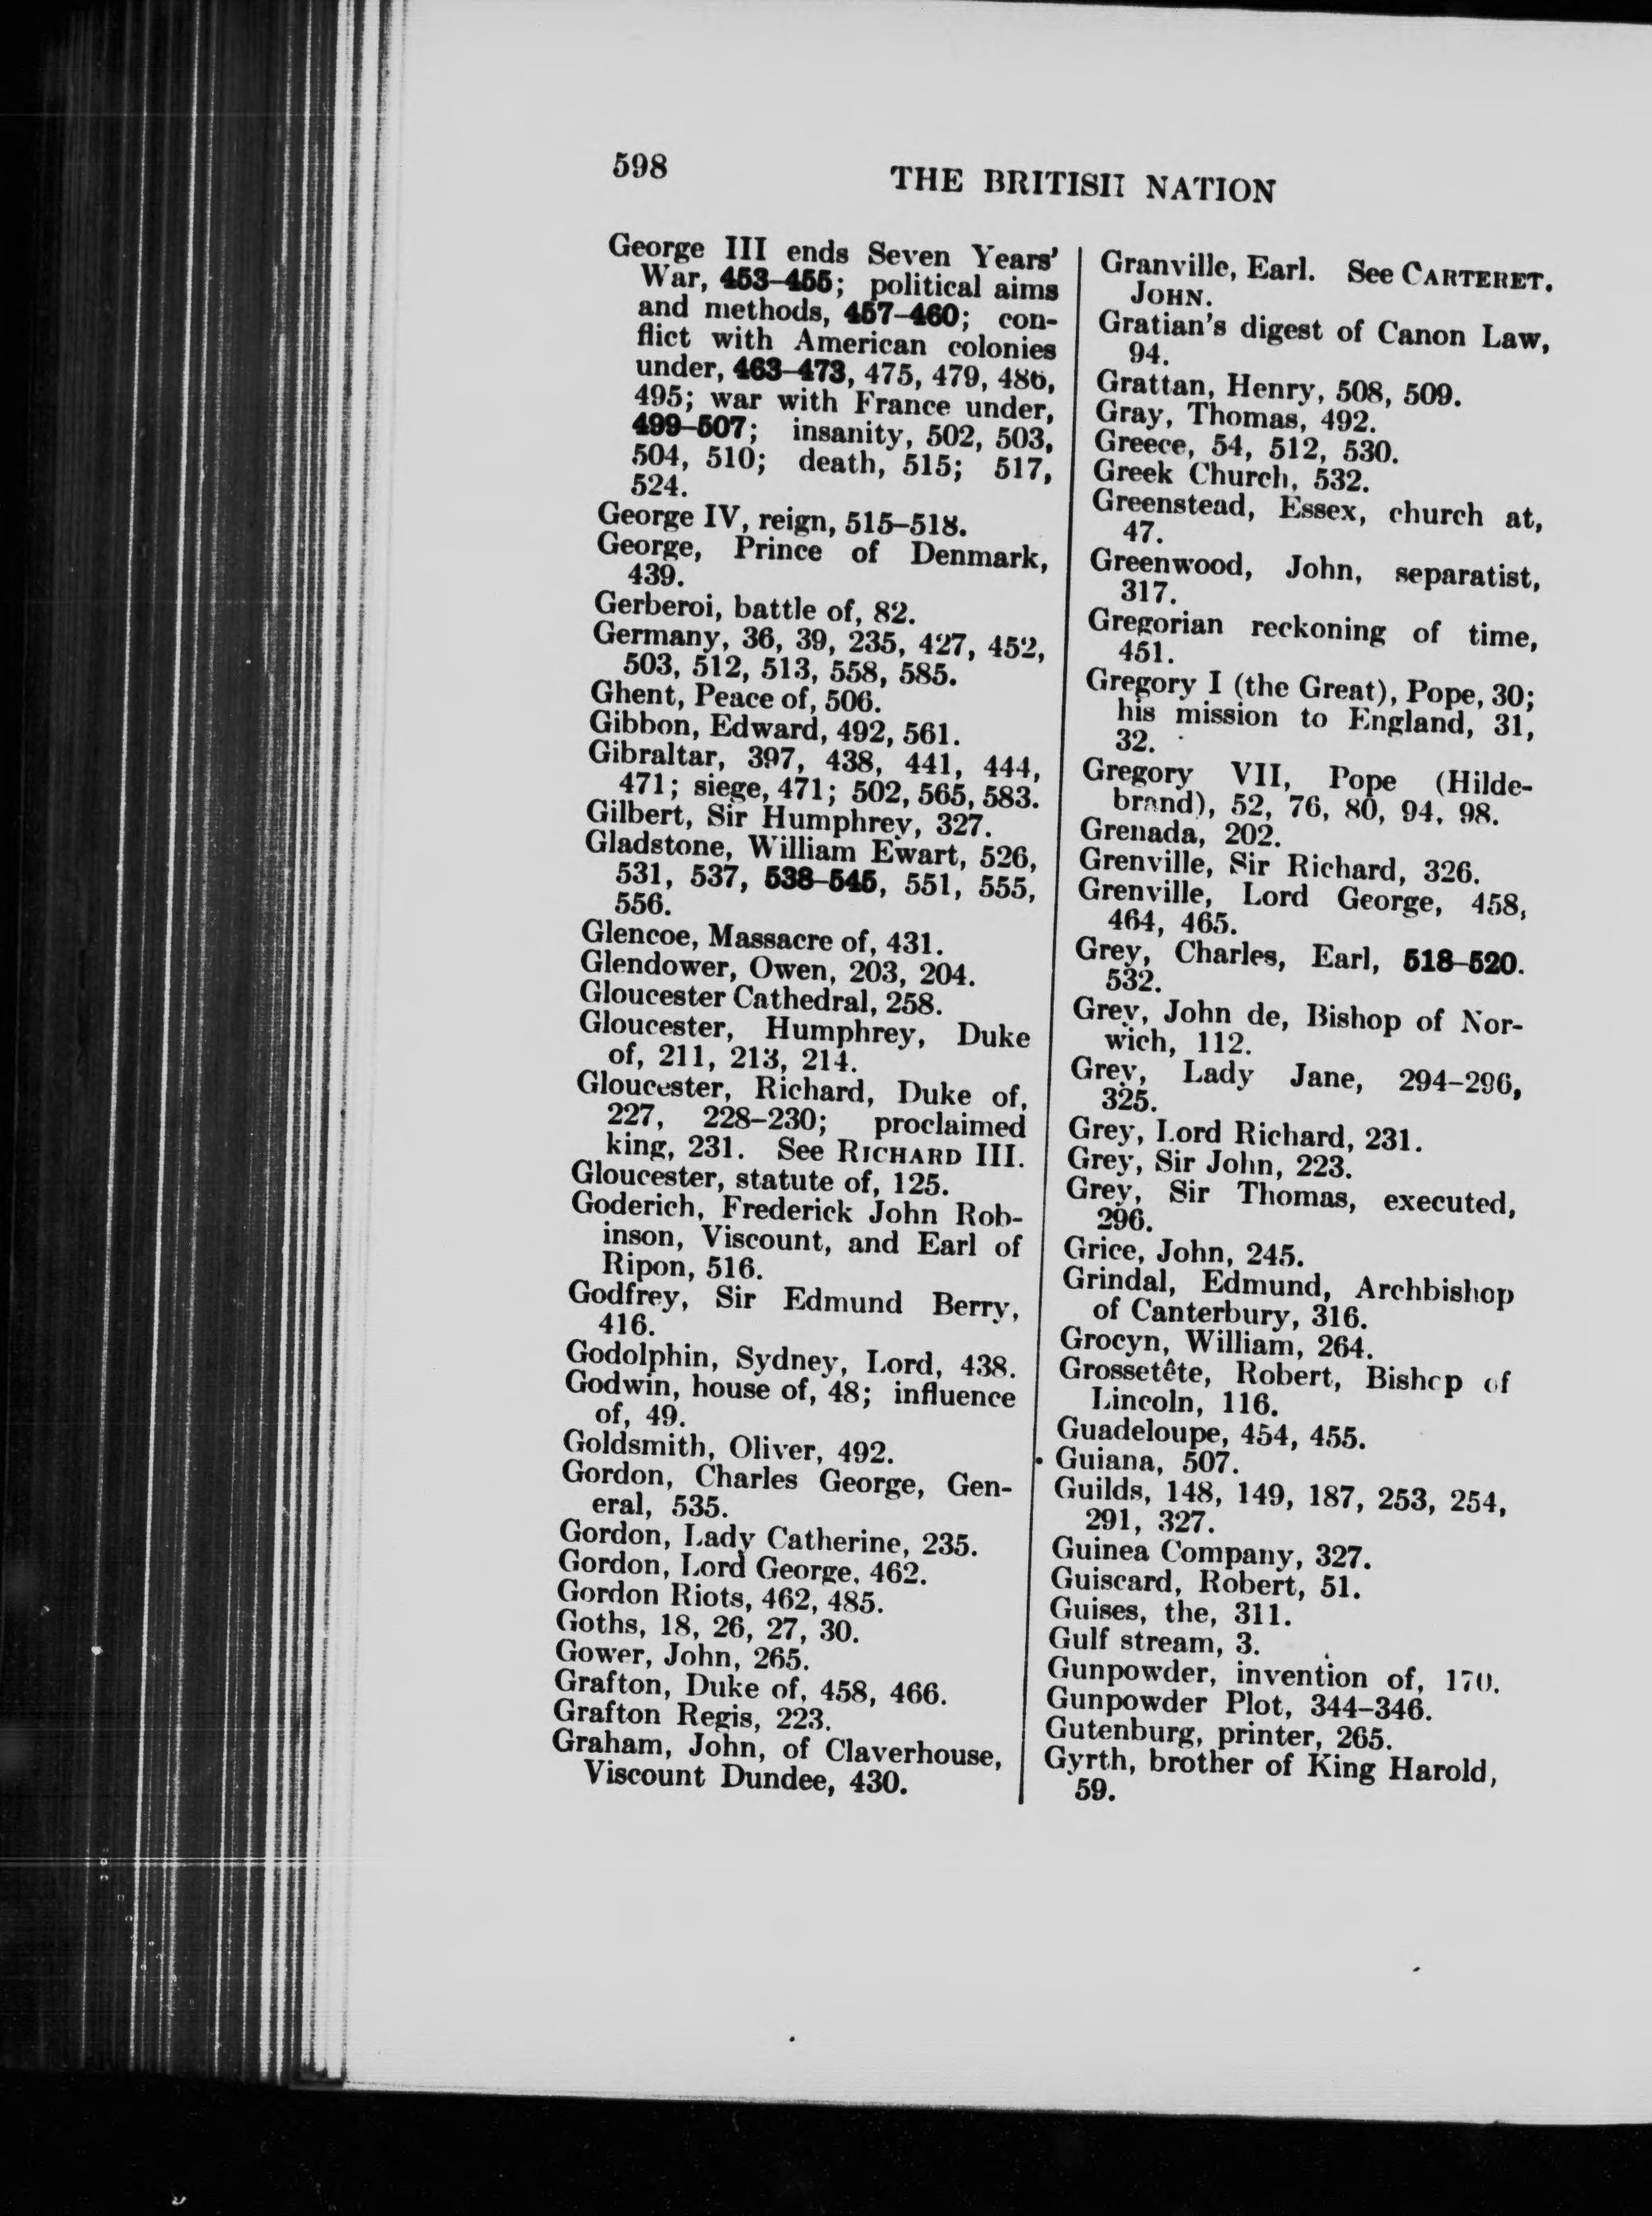 598
THE BRITISH NATION
George III ends Seven Years'
War, 453–455; political aims
and methods, 457–460; con-
flict with American colonies
under, 463–473, 475, 479, 486,
495; war with France under,
499–507; insanity, 502, 503,
504, 510; death, 515; 517,
524.
George IV, reign, 515–518.
George, Prince of Denmark,
439.
Gerberoi, battle of, 82.
Germany, 36, 39, 235, 427, 452,
503, 512, 513, 558, 585.
Ghent, Peace of, 506.
Gibbon, Edward, 492, 561.
Gibraltar, 397, 438, 441, 444,
471; siege, 471; 502, 565, 583.
Gilbert, Sir Humphrey, 327.
Gladstone, William Ewart, 526,
531, 537, 538–545, 551, 555,
556.
Glencoe, Massacre of, 431.
Glendower, Owen, 203, 204.
Gloucester Cathedral, 258.
Gloucester, Humphrey, Duke
of, 211, 213, 214.
Gloucester, Richard, Duke of,
227, 228–230; proclaimed
king, 231. See RICHARD III.
Gloucester, statute of, 125.
Goderich, Frederick John Rob-
inson, Viscount, and Earl of
Ripon, 516.
Godfrey, Sir Edmund Berry,
416.
Godolphin, Sydney, Lord, 438.
Godwin, house of, 48; influence
of, 49.
Goldsmith, Oliver, 492.
Gordon, Charles George, Gen-
eral, 535.
Gordon, Lady Catherine, 235.
Gordon, Lord George, 462.
Gordon Riots, 462, 485.
Goths, 18, 26, 27, 30.
Gower, John, 265.
Grafton, Duke of, 458, 466.
Grafton Regis, 223.
Graham, John, of Claverhouse,
Viscount Dundee, 430.
Granville, Earl. See CARTERET,
JOHN.
Gratian's digest of Canon Law,
94.
Grattan, Henry, 508, 509.
Gray, Thomas, 492.
Greece, 54, 512, 530.
Greek Church, 532.
Greenstead, Essex, church at,
47.
Greenwood, John, separatist,
317.
Gregorian reckoning of time,
451.
Gregory I (the Great), Pope, 30;
his mission to England, 31,
32.
Gregory VII, Pope (Hilde-
brand), 52, 76, 80, 94, 98.
Grenada, 202.
Grenville, Sir Richard, 326.
Grenville, Lord George, 458,
464, 465.
Grey, Charles, Earl, 518–520.
532.
Grey, John de, Bishop of Nor-
wich, 112.
Grey, Lady Jane, 294–296,
325.
Grey, Lord Richard, 231.
Grey, Sir John, 223.
Grey, Sir Thomas, executed,
296.
Grice, John, 245.
Grindal, Edmund, Archbishop
of Canterbury, 316.
Grocyn, William, 264.
Grossetête, Robert, Bishop of
Lincoln, 116.
Guadeloupe, 454, 455.
Guiana, 507.
Guilds, 148, 149, 187, 253, 254,
291, 327.
Guinea Company, 327.
Guiscard, Robert, 51.
Guises, the, 311.
Gulf stream, 3.
Gunpowder, invention of, 170.
Gunpowder Plot, 344–346.
Gutenburg, printer, 265.
Gyrth, brother of King Harold,
59.